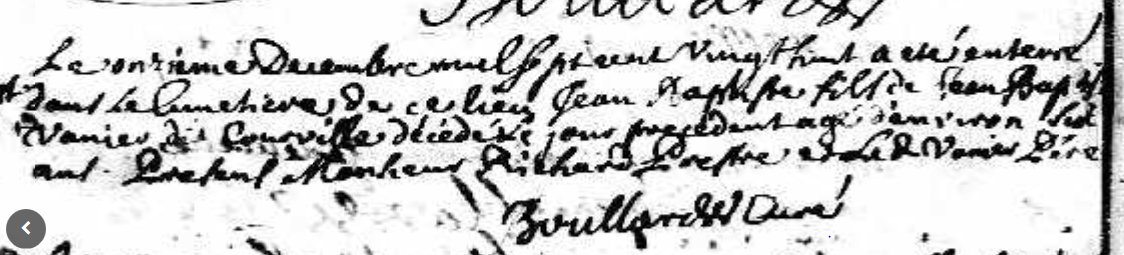 Boullard
Le onzième Decembre mil sept cent vingt huit a eté enterré
dans le Cimetiere de ce lieu Jean Baptiste fils de Jean Baptiste
Vanier dit Courville décédé le jour precedent agé d'environ
ans. Presens Monsieur Richard Prestre Vanier Père
Boullard Curé